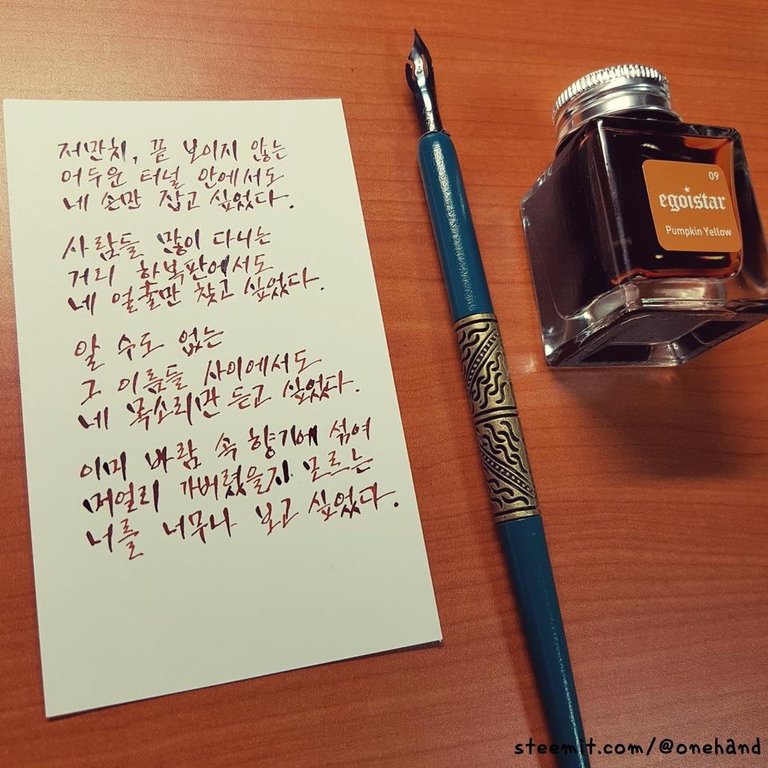 저만치, 끝 보이지 않는
어두운 터널 안에서도
네 손만 잡고 싶었다.
사람들 많이 다니는
거리 한복판에서도
네 얼굴만 찾고 싶었다.
알 수도 없는
그 이름들 사이에서도
네 목소리만 듣고 싶었다.
이미 바람 속 향기에 섞여
머얼리 가버렸을지 모르는
너를 너무나 보고 싶었다.
09
egoistar
Pumpkin Yellow
steemit.com/@onehand